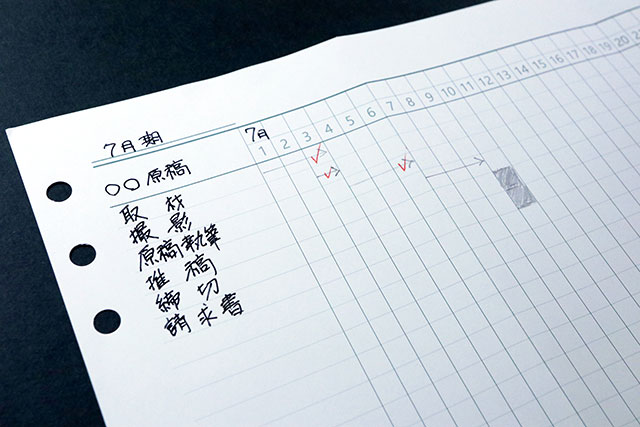 7月期
7月
1 2 3 4 5 6 7 8 9 10 11 12 13 14 15 16 17 18 19 20 21
○○原稿
取材
撮影
原稿執筆
推稿
締切
請求書